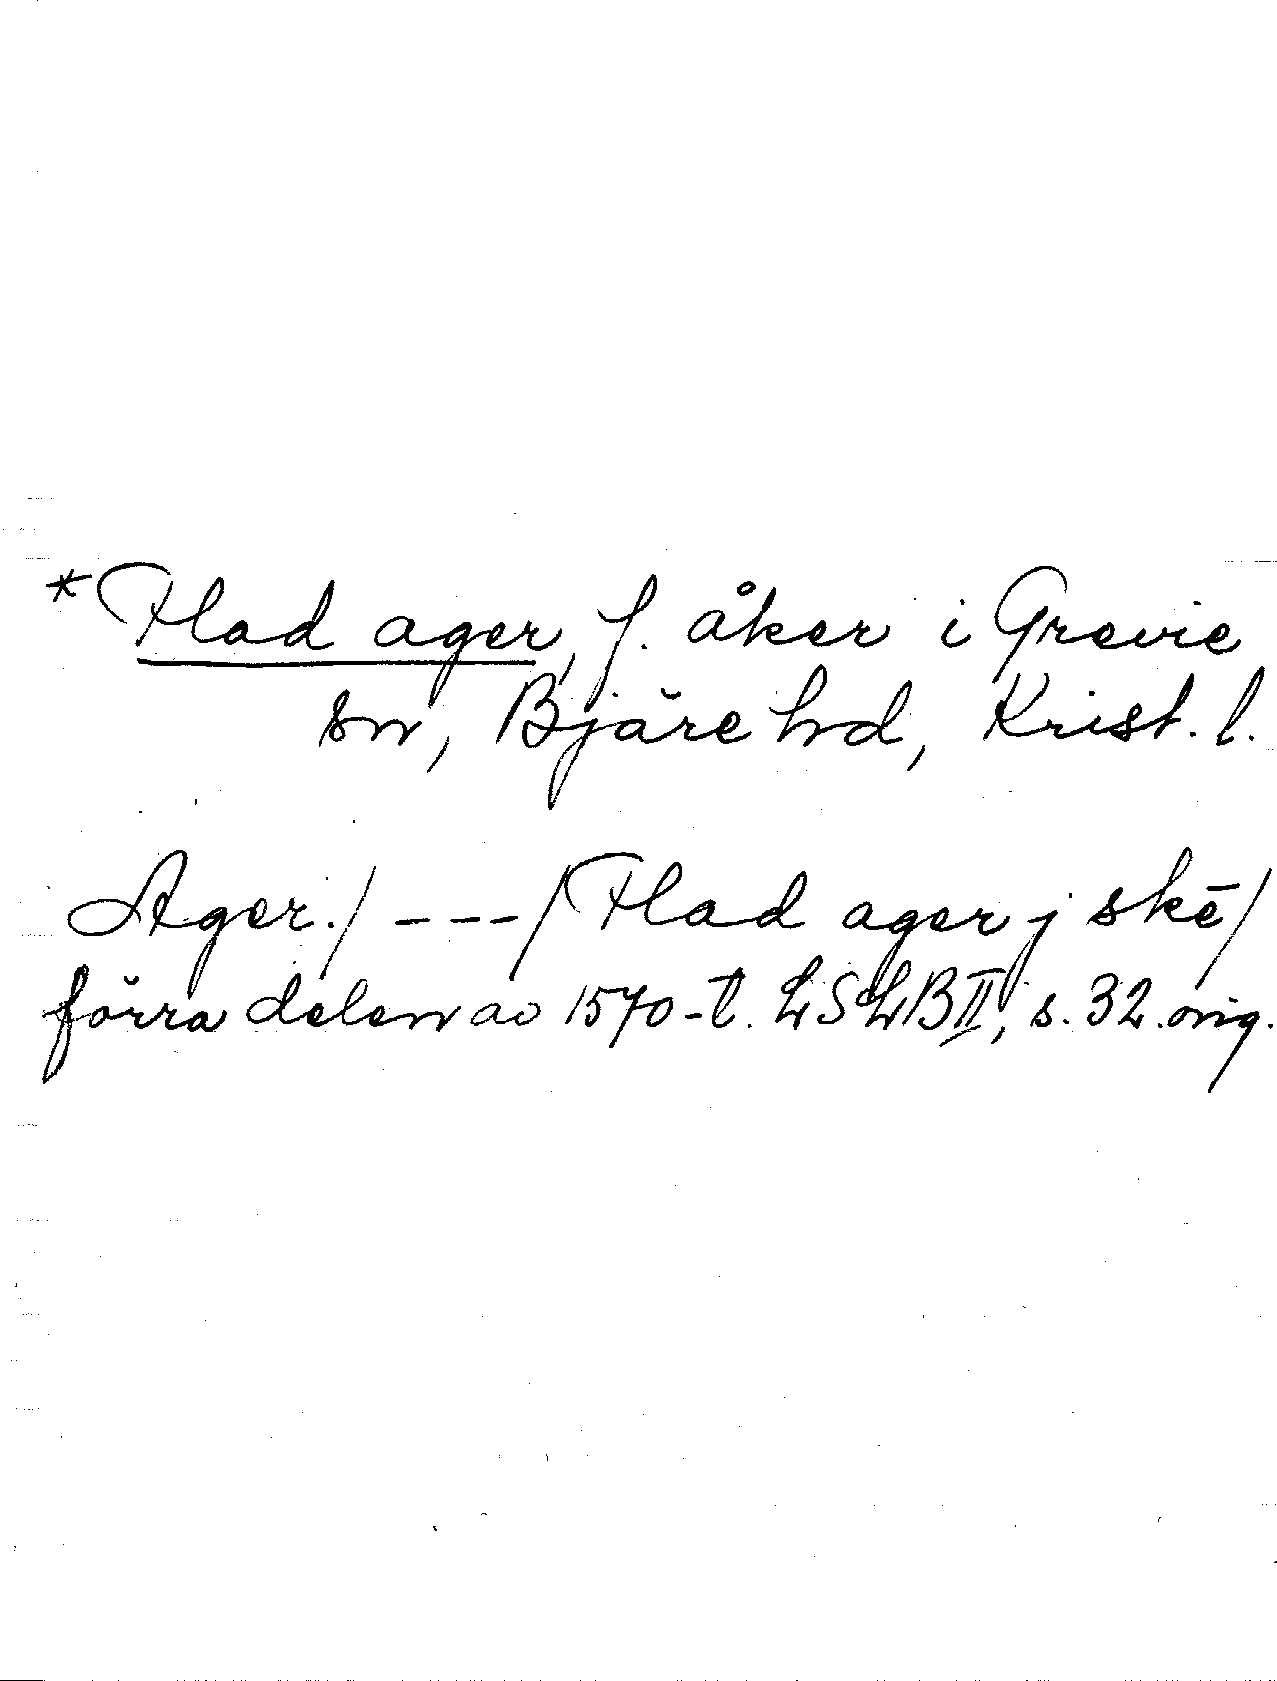 *Flad ager, f. åker i Grevie
sn, Bjäre hd, Krist. l.
Ager./ --- / Flad ager j skē/
förra delen av 1570-t. LSLB II, s. 32. orig.